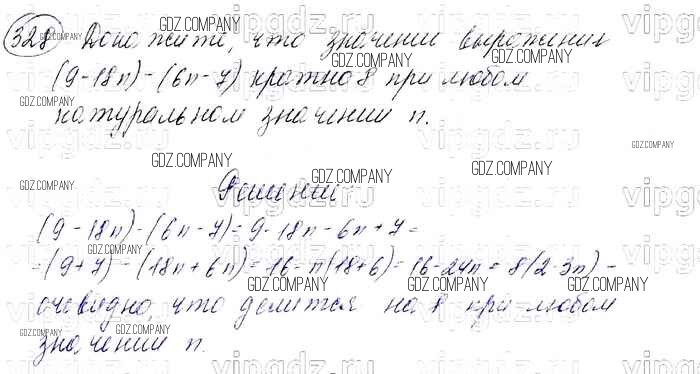 328 Докажите, что значение выражения
(9-18n)-(6n-7) кратно 8 при любом
натуральном значении n.
Решение:
(9-18n)-(6n-7)=9-18n-6n+7=
=(9+7)-(18n+6n)=16-n(18+6)=16-24n=8(2-3n)-
очевидно, что делится на 8 при любом
значении n.
GDZ.COMPANY
vipgdz.ru